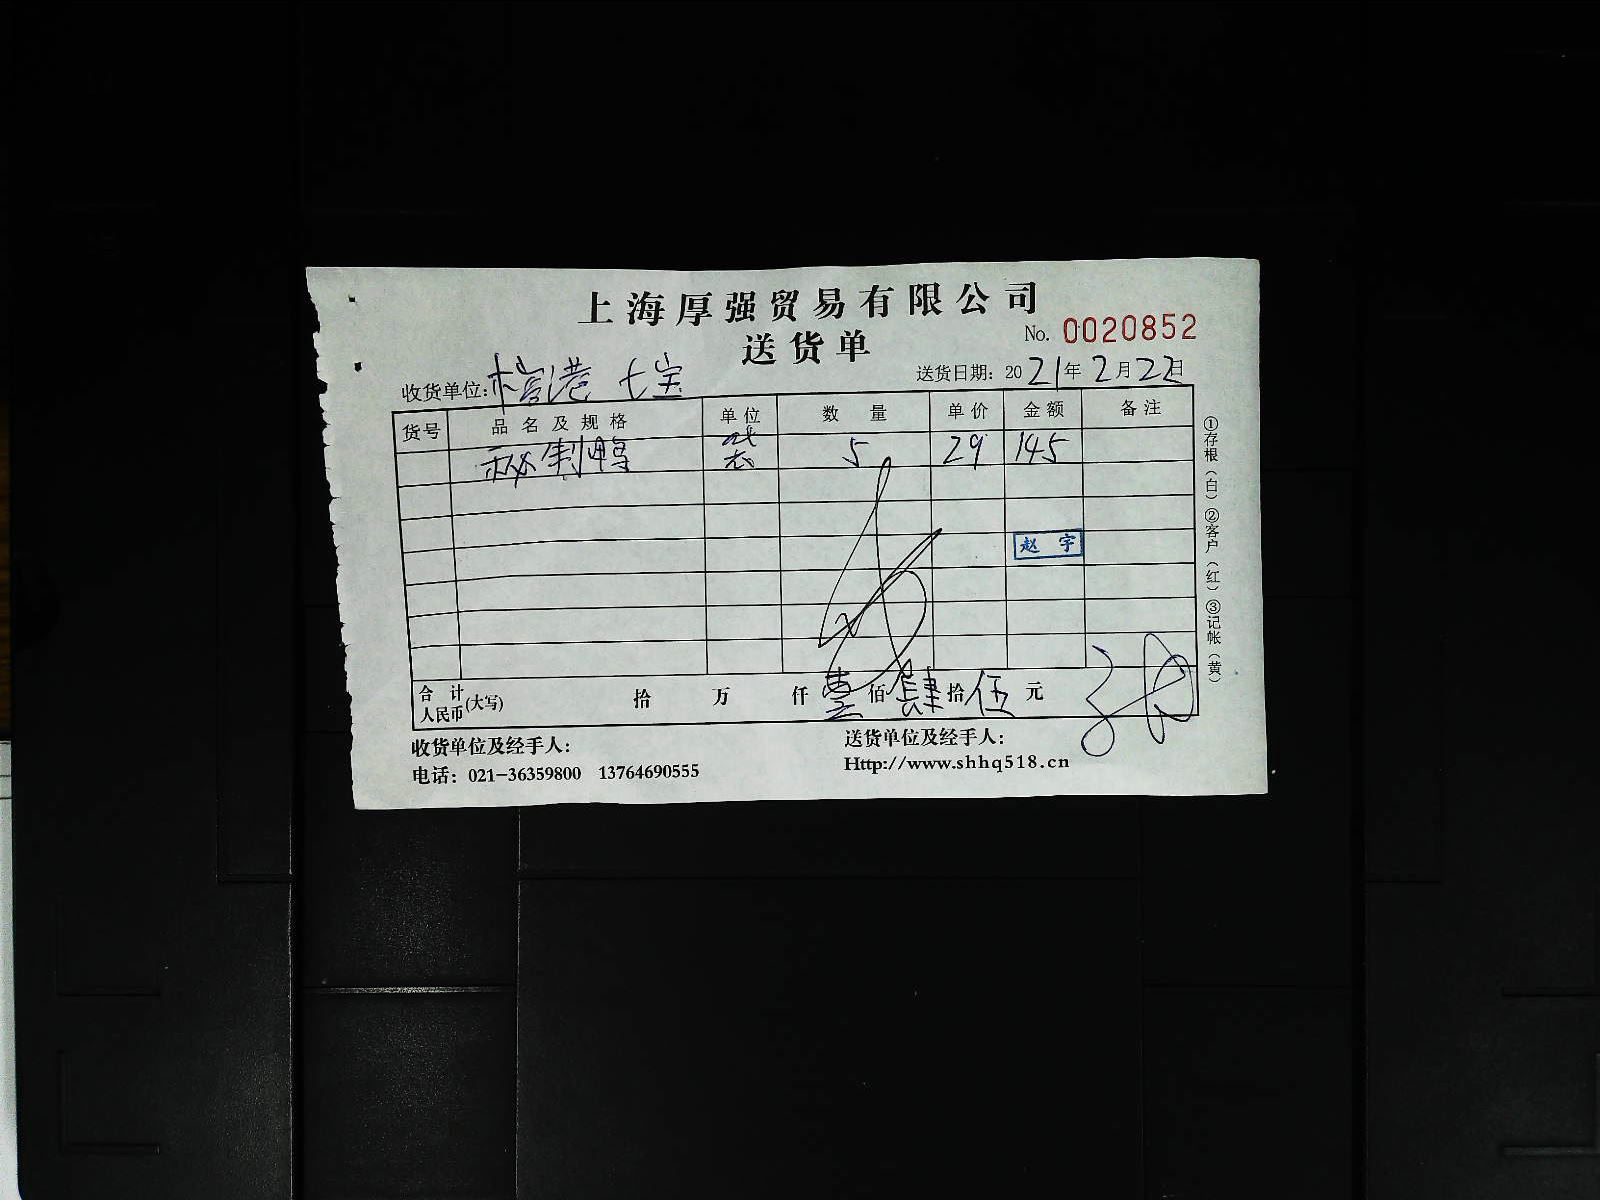 上海厚强贸易有限公司
送货单
No. 0020852
收货单位: 港 七宝
送货日期: 2021年2月22日
货号 品名及规格 单位 数量 单价 金额 备注
秘制鸭 袋 5 29 145
赵宇
合计人民币(大写) 拾 万 仟 壹 佰 肆 拾 伍 元
收货单位及经手人:
送货单位及经手人:
电话: 021-36359800 13764690555
Http://www.shhq518.cn
①存根(白)②客户(红)③记帐(黄)